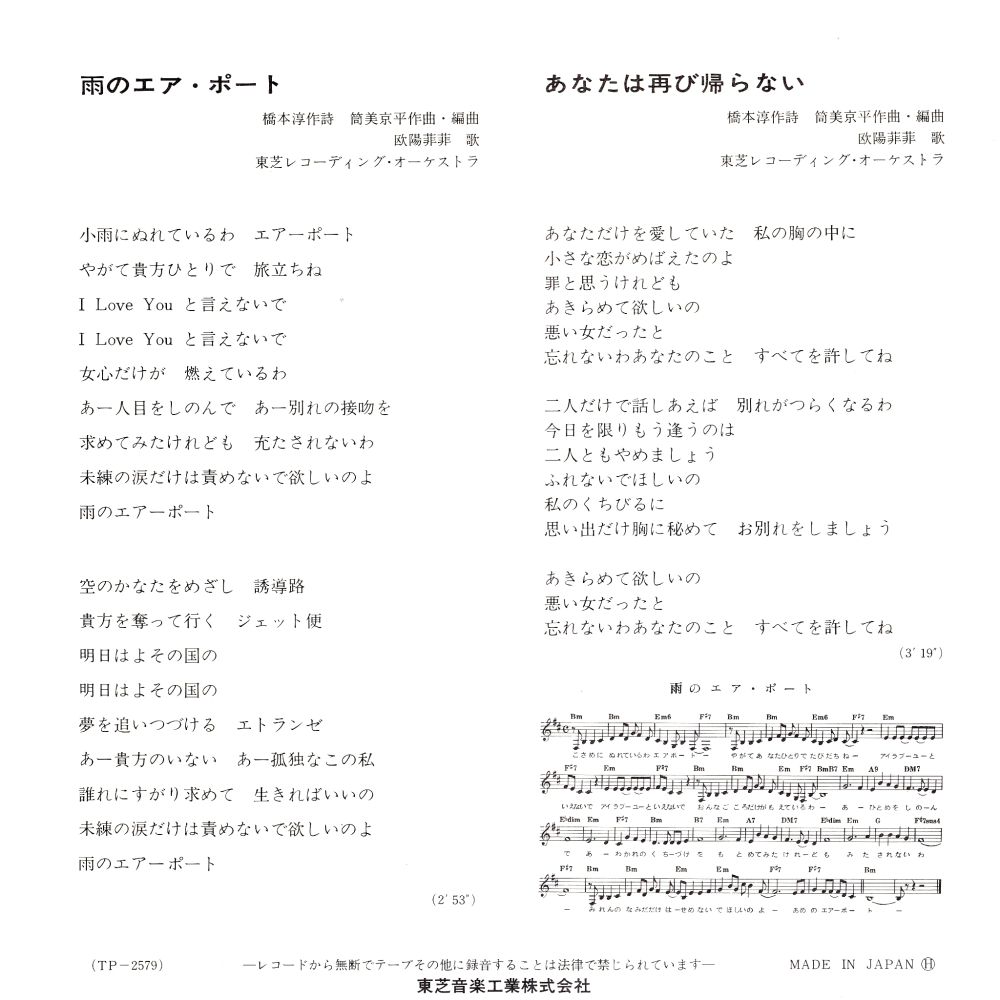 雨のエア・ポート
橋本淳作詩　筒美京平作曲・編曲
欧陽菲菲　歌
東芝レコーディング・オーケストラ
小雨にぬれているわ　エアーポート
やがて貴方ひとりで　旅立ちね
I Love You と言えないで
I Love You と言えないで
女心だけが　燃えているわ
あー人目をしのんで　あー別れの接吻を
求めてみたけれども　充たされないわ
未練の涙だけは責めないで欲しいのよ
雨のエアーポート
空のかなたをめざし　誘導路
貴方を奪って行く　ジェット便
明日はよその国の
明日はよその国の
夢を追いつづける　エトランゼ
あー貴方のいない　あー孤独なこの私
誰れにすがり求めて　生きればいいの
未練の涙だけは責めないで欲しいのよ
雨のエアーポート
(2′53″)
あなたは再び帰らない
橋本淳作詩　筒美京平作曲・編曲
欧陽菲菲　歌
東芝レコーディング・オーケストラ
あなただけを愛していた　私の胸の中に
小さな恋がめばえたのよ
罪と思うけれども
あきらめて欲しいの
悪い女だったと
忘れないわあなたのこと　すべてを許してね
二人だけで話しあえば　別れがつらくなるわ
今日を限りもう逢うのは
二人ともやめましょう
ふれないでほしいの
私のくちびるに
思い出だけ胸に秘めて　お別れをしましょう
あきらめて欲しいの
悪い女だったと
忘れないわあなたのこと　すべてを許してね
(3′19″)
雨のエア・ポート
Bm Bm Em6 F♯7 Bm Bm Em6 F♯7 Em
こさめに ぬれているわ エアポートー やがてあ なたひとりで たびだちねー アイラブーユーと
F♯7 Em F♯7 Bm Bm Em F♯7 BmB7 Em A9 DM7
いえないで アイラブーユーといえないで おんなご ころだけがも えているわー あー ひとめを し のーん
E♭dim Em F♯7 Bm B7 Em A7 DM7 E♭dim Em G F♯7sus4
で あーわかれの く ちーづけ を も とめてみた けれーど も み た されない わ
F♯7 Bm Em Em F♯7 F♯7 Bm
ー みれんの なみだだけ はーせめない で ほしいの よー あめ の エアーポー トー
(TP-2579)
―レコードから無断でテープその他に録音することは法律で禁じられています―
MADE IN JAPAN Ⓗ
東芝音楽工業株式会社